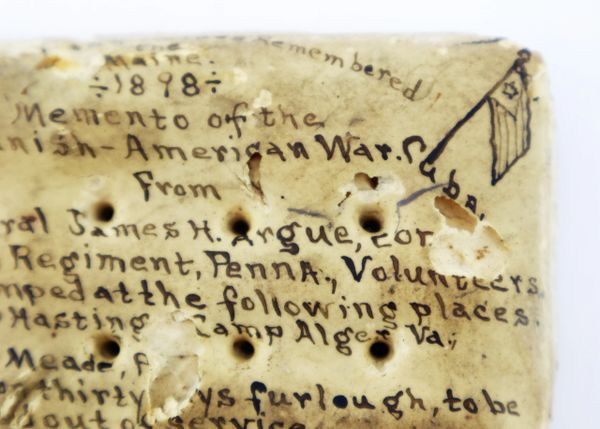 the Remembered
Maine.
÷1898÷
Memento of the
nish-American War. Cuba.
From
ral James H. Argue, Cor
Regiment, Penna., Volunteers
mped at the following places.
Hasting Camp Alger Va.,
Meade, P
thirty ys furlough, to be
out of service